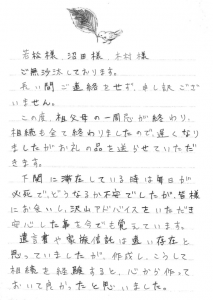 若松様 沼田様 木村様
ご無沙汰しております。
長い間ご連絡をせず、申し訳ござい
いません。
この度、祖父母の一周忌が終わり、
相続も全て終わりましたので、遅くなり
ましたがお礼の品を送らせていただ
きます。
下関に滞在している時は毎日が
必死で、どうなるか不安でしたが、皆様
にお会いし、沢山アドバイスをいただき
安心した事を今でも覚えています。
遺言書や家族信託は遠い存在と
思っていましたが、作成し、こうして
相続を経験すると、心から作って
おいて良かったと思いました。